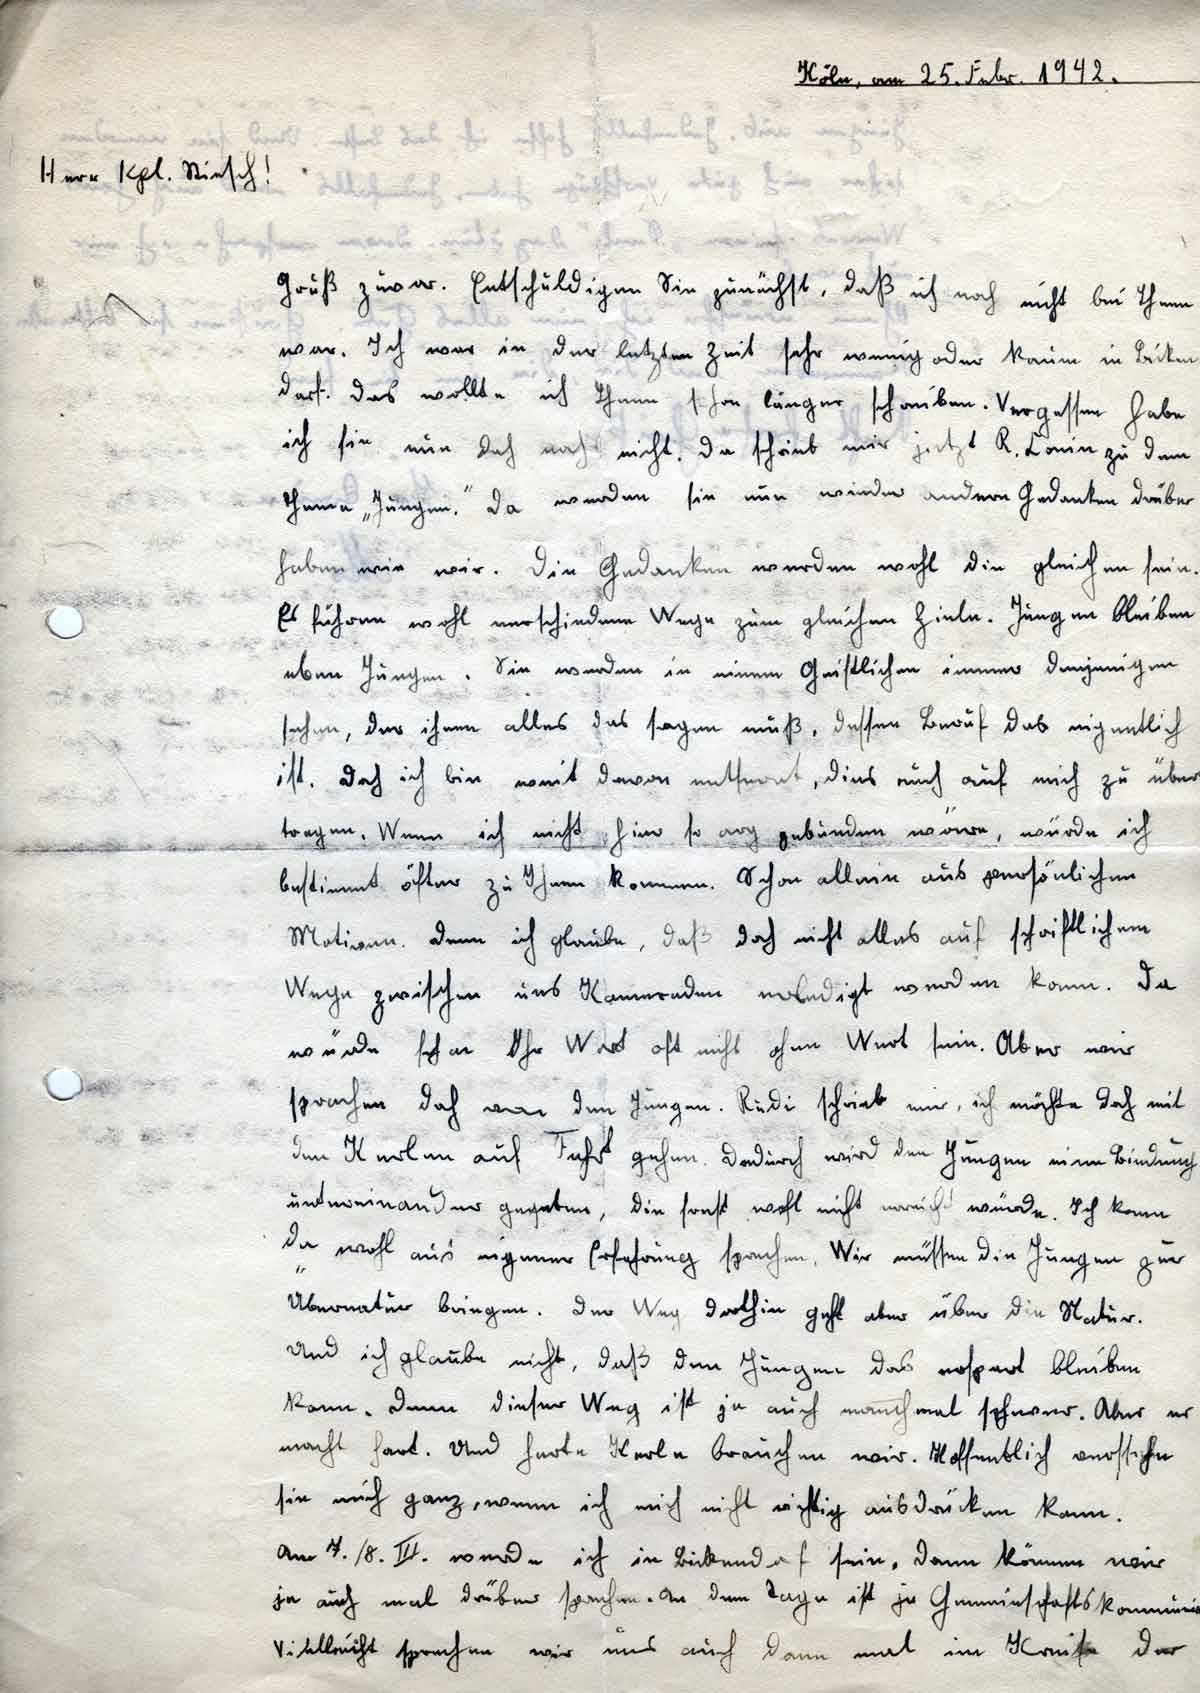 Köln, am 25. Febr. 1942.
Herr Kpl. Stiesch!
Gruß zuvor. Entschuldigen Sie zunächst, daß ich noch nicht bei Ihnen
war. Ich war in der letzten Zeit sehr wenig oder kaum in Bicken
dorf. Das wollte ich Ihnen schon länger schreiben. Vergessen habe
ich sie nun doch noch nicht. Da schrieb mir jetzt R. zu dem
Thema „Jungen." Da werden sie nun wieder andere Gedanken drüber
haben wie wir. Die Gedanken werden wohl die gleichen sein.
Es führen wohl verschiedene Wege zum gleichen Ziele. Jungen bleiben
eben Jungen. Sie werden in einem Geistlichen immer denjenigen
sehen, der ihnen alles das sagen muß, dessen Beruf das eigentlich
ist. Doch ich bin weit davon entfernt, dies auch auf mich zu über
tragen. Wenn ich nicht hier so arg gebunden wäre, würde ich
bestimmt öfter zu Ihnen kommen. Schon allein aus persönlichen
Motiven. Denn ich glaube, daß doch nicht alles auf schriftlichem
Wege zwischen uns Kameraden erledigt werden kann. Da
würde schon Ihr Wort oft nicht ohne Wert sein. Aber wir
sprachen doch von den Jungen. Rudi schrieb mir, ich möchte doch mit
den Kerlen auf Fahrt gehen. Dadurch wird den Jungen eine Bindung
untereinander gegeben, die sonst wohl nicht erreicht würde. Ich kann
da wohl aus eigener Erfahrung sprechen. Wir müssen die Jungen zur
Übernatur bringen. Der Weg dorthin geht aber über die Natur.
Und ich glaube nicht, daß den Jungen das erspart bleiben
kann. Denn dieser Weg ist ja auch manchmal schwer. Aber er
macht hart. Und harte Kerle brauchen wir. Hoffentlich verstehen
sie mich ganz, wenn ich mich nicht richtig ausdrücken kann.
Am 7./8. III. werde ich in Bickendorf sein, dann können wir
ja auch mal drüber sprechen. An dem Tage ist ja Gemeinschaftskommunion
Vielleicht sprechen wir uns auch dann mal im Kreise der